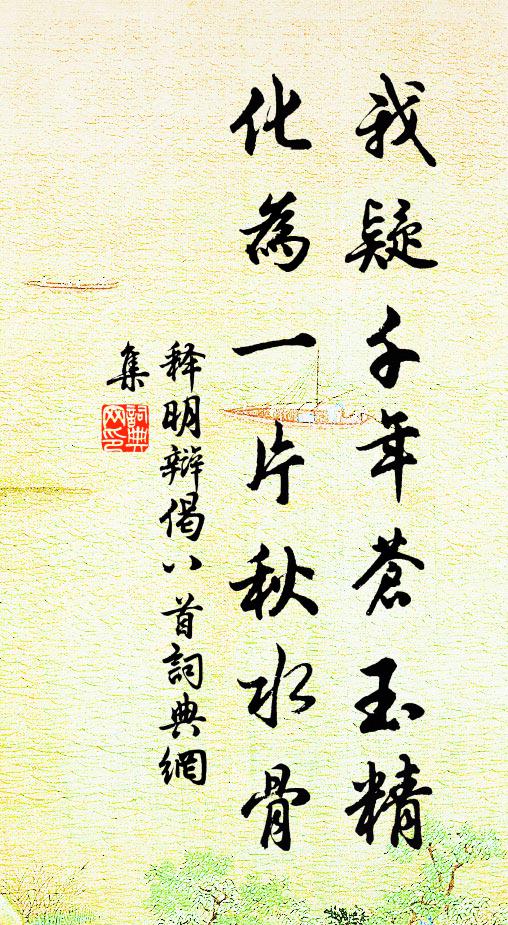 我疑千年蒼玉精
化為一片秋水骨
释明辯偈八首詞典網
集
詞典網印